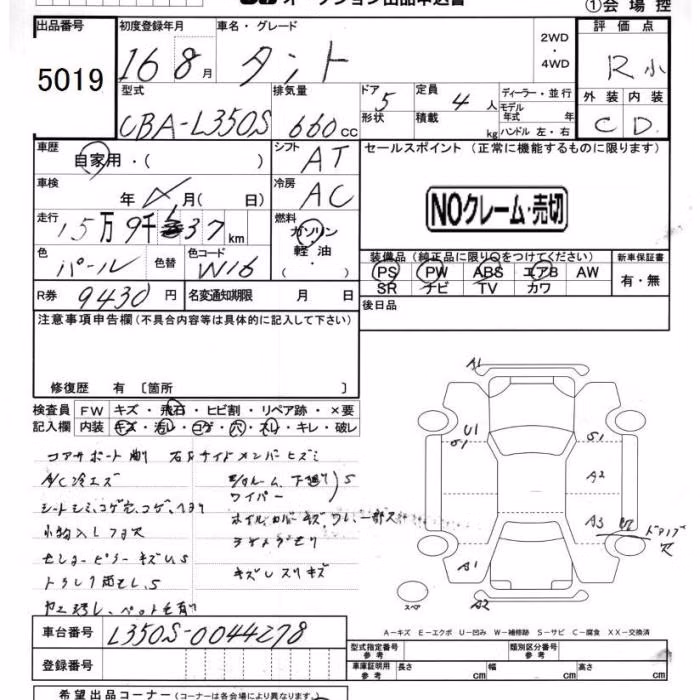 オークション出品申込書
①会場控
出品番号 初度登録年月 車名・グレード 2WD・4WD 評価点
5019 16 8月 タント R小
型式 排気量 ドア 5 定員 4人 ディーラー・並行 外装 内装
CBA-L350S 660cc 形状 積載 kg モデル年式 年 ハンドル 左・右 C D
車歴 自家用・( ) シフト AT セールスポイント (正常に機能するものに限ります)
車検 年 月( 日) 冷房 AC NOクレーム・売切
走行 15万9千 37 km 燃料 ガソリン 軽油・
色 パール 色替 色コード W16 装備品(純正品に限り○をつけてください) 新車保証書
PS PW ABS エアB AW 有・無
SR ナビ TV カワ
R券 9430円 名変通知期限 月 日 後日品
注意事項申告欄(不具合内容等は具体的に記入して下さい)
修復歴 有〔箇所 〕
検査員 FW キズ・飛石・ヒビ割・リペア跡・×要
記入欄 内装 キズ・汚レ・コゲ・穴・スレ・キレ・破レ
コアサポート 右サイドメンバーヒズミ
A/C冷エズ
ワイパー
キズ
A1
U1
S1 S1
A2
A3
A1
A2
スペア
A－キズ E－エクボ U－凹み W－補修跡 S－サビ C－腐食 XX－交換済
車台番号 L350S-0044278
登録番号
型式指定番号 参考 類別区分番号 参考
車庫証明用 参考 長さ cm 幅 cm 高さ cm
希望出品コーナー(コーナーは各会場により異なります)